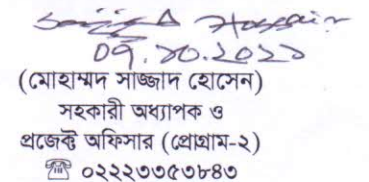 Sajjad Hossain
09.10.2021
(মোহাম্মদ সাজ্জাদ হোসেন)
সহকারী অধ্যাপক ও
প্রজেক্ট অফিসার (প্রোগ্রাম-২)
☎ ০২২২৩৩৫৩৮৪৩